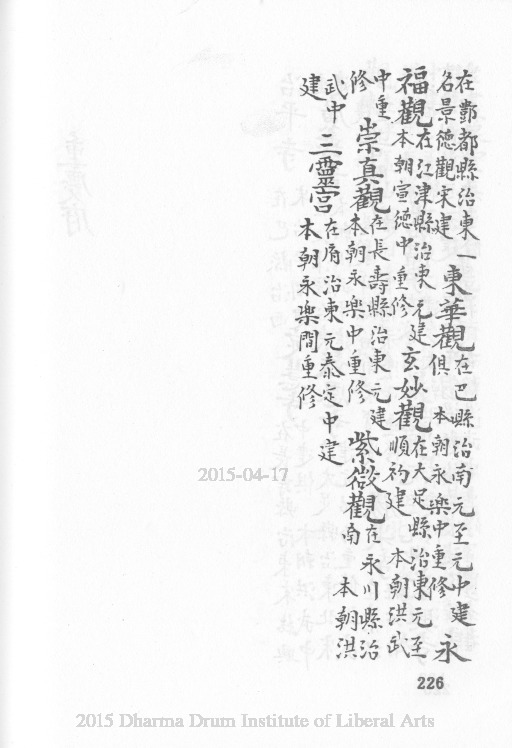 在酆都縣治東一
名景德觀宋建
東華觀
在巴縣治南元至元中建
俱 本朝永樂中重修
永
福觀
在江津縣治東元建
本朝宣德中重修
玄妙觀
在大足縣治東元至
順初建 本朝洪武
中重
修
崇真觀
在長壽縣治東元建
本朝永樂中重修
紫微觀
在永川縣治
南 本朝洪
武中
建
三靈宮
在府治東元泰定中建
本朝永樂間重修
2015-04-17
226
2015 Dharma Drum Institute of Liberal Arts